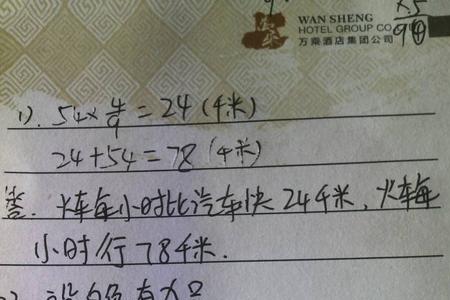 WAN SHENG
HOTEL GROUP CO
万乘酒店集团公司
×.5
90
1). 54×4/9=24(千米)
24+54=78(千米)
答:火车每小时比汽车快24千米,火车每
小时行78千米.